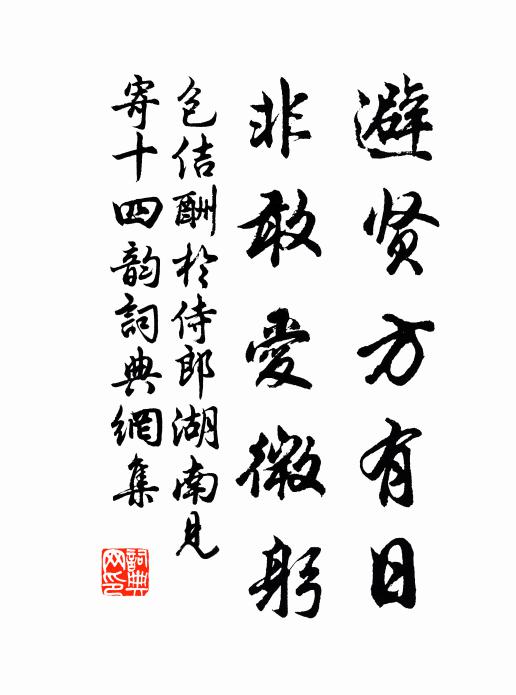 避贤方有日
非敢愛微躬
包佶酬於侍郎湖南見
寄十四韵詞典網集
詞典
网印